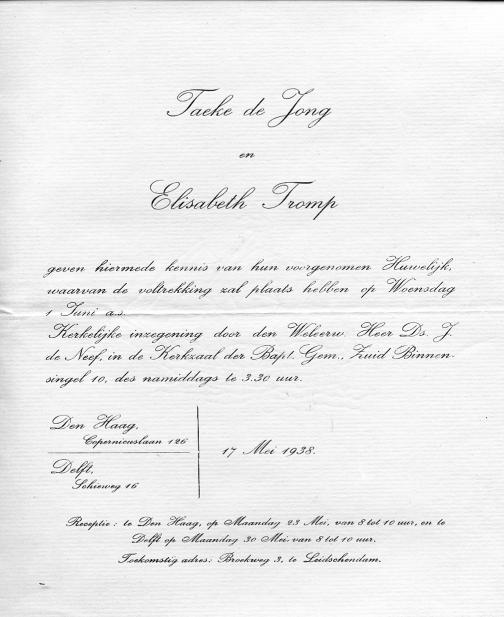 Taeke de Jong
en
Elisabeth Tromp
geven hiermede kennis van hun voorgenomen Huwelijk,
waarvan de voltrekking zal plaats hebben op Woensdag
1 Juni a.s.
Kerkelijke inzegening door den Weleerw. Heer Ds. J.
de Neef, in de Kerkzaal der Bapt. Gem., Zuid Binnen-
singel 10, des namiddags te 3.30 uur.
Den Haag,
Copernicuslaan 126
Delft,
Schieweg 16
17 Mei 1938.
Receptie: te Den Haag, op Maandag 23 Mei, van 8 tot 10 uur, en te
Delft op Maandag 30 Mei van 8 tot 10 uur.
Toekomstig adres: Broekweg 3, te Leidschendam.